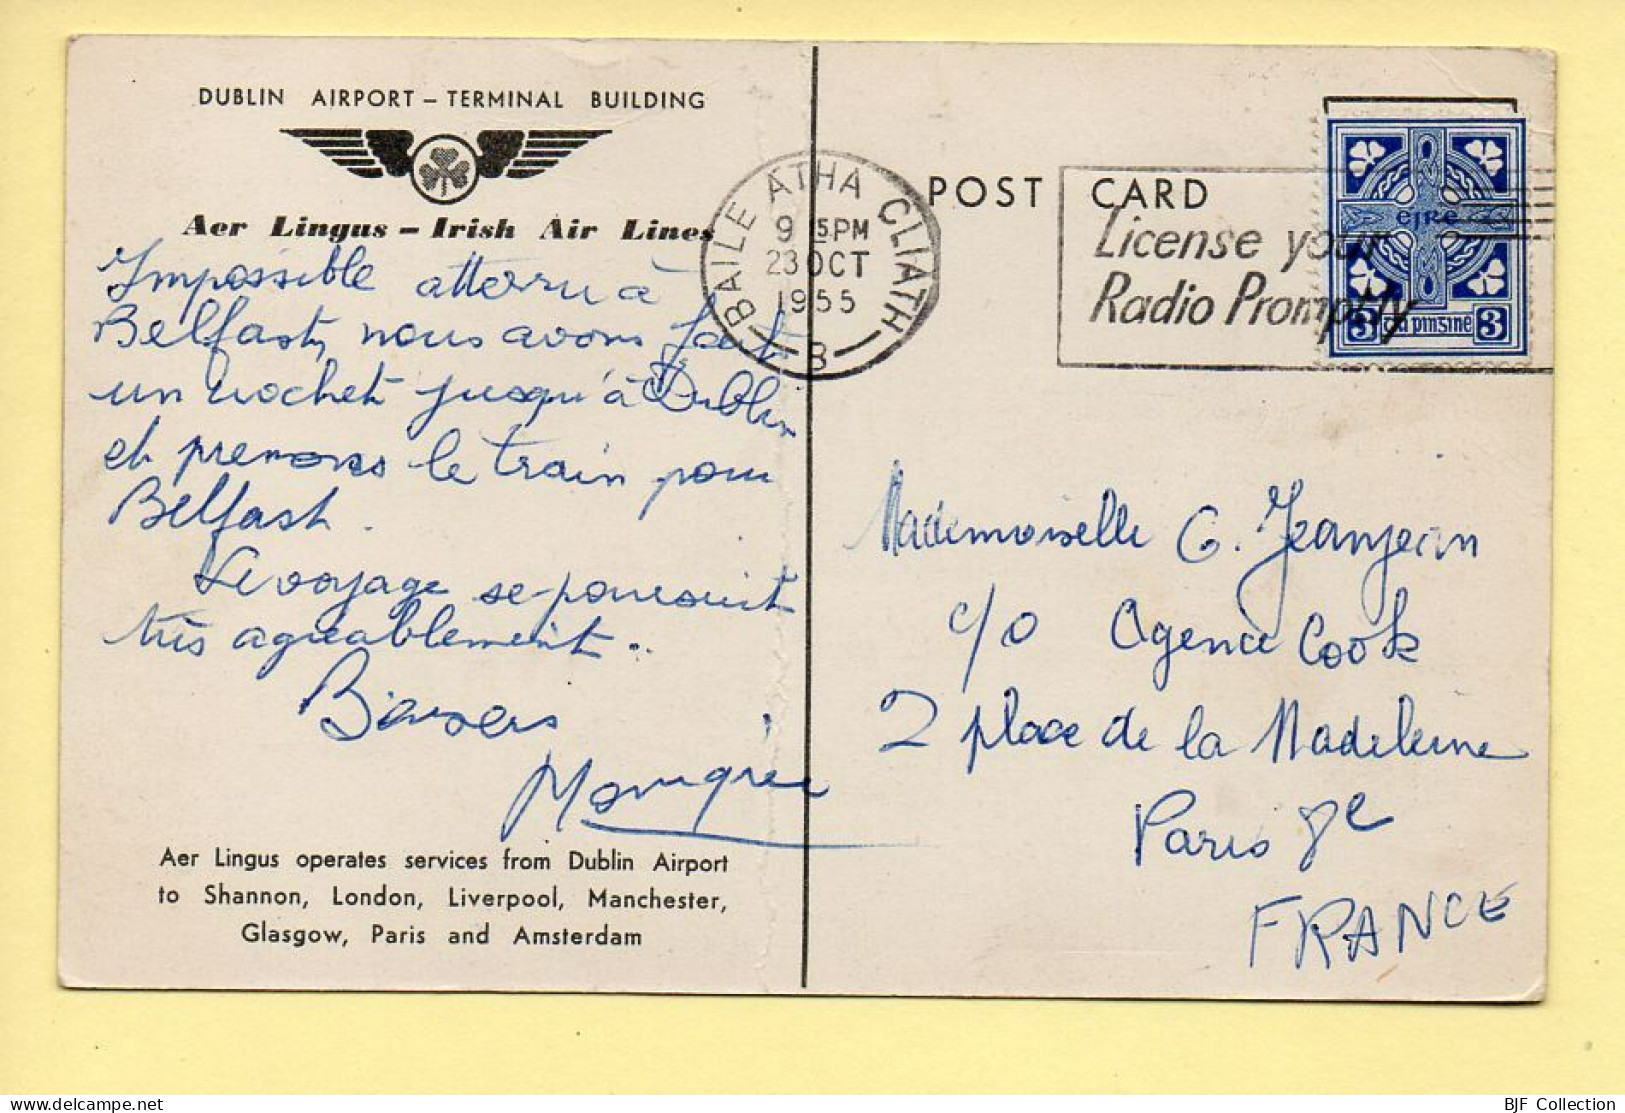 DUBLIN AIRPORT – TERMINAL BUILDING
Aer Lingus – Irish Air Lines
Impossible atterru à
Belfast, nous avons fait
un crochet jusqu'à Dublin
et prenons le train pour
Belfast.
Le voyage se poursuit
très agréablement..
Baisers
Aer Lingus operates services from Dublin Airport
to Shannon, London, Liverpool, Manchester,
Glasgow, Paris and Amsterdam
BAILE ATHA CLIATH
9 15PM
23 OCT
1955
B
POST CARD
License your
Radio Promptly
eire
3 pinsine 3
Mademoiselle G. Jeanjean
c/o Agence Cook
2 place de la Madeleine
Paris 8e
FRANCE
BJF Collection